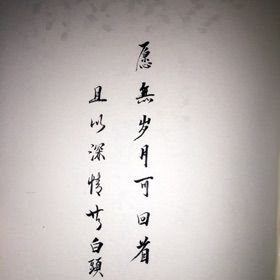 愿無岁月可回首
且以深情共白頭